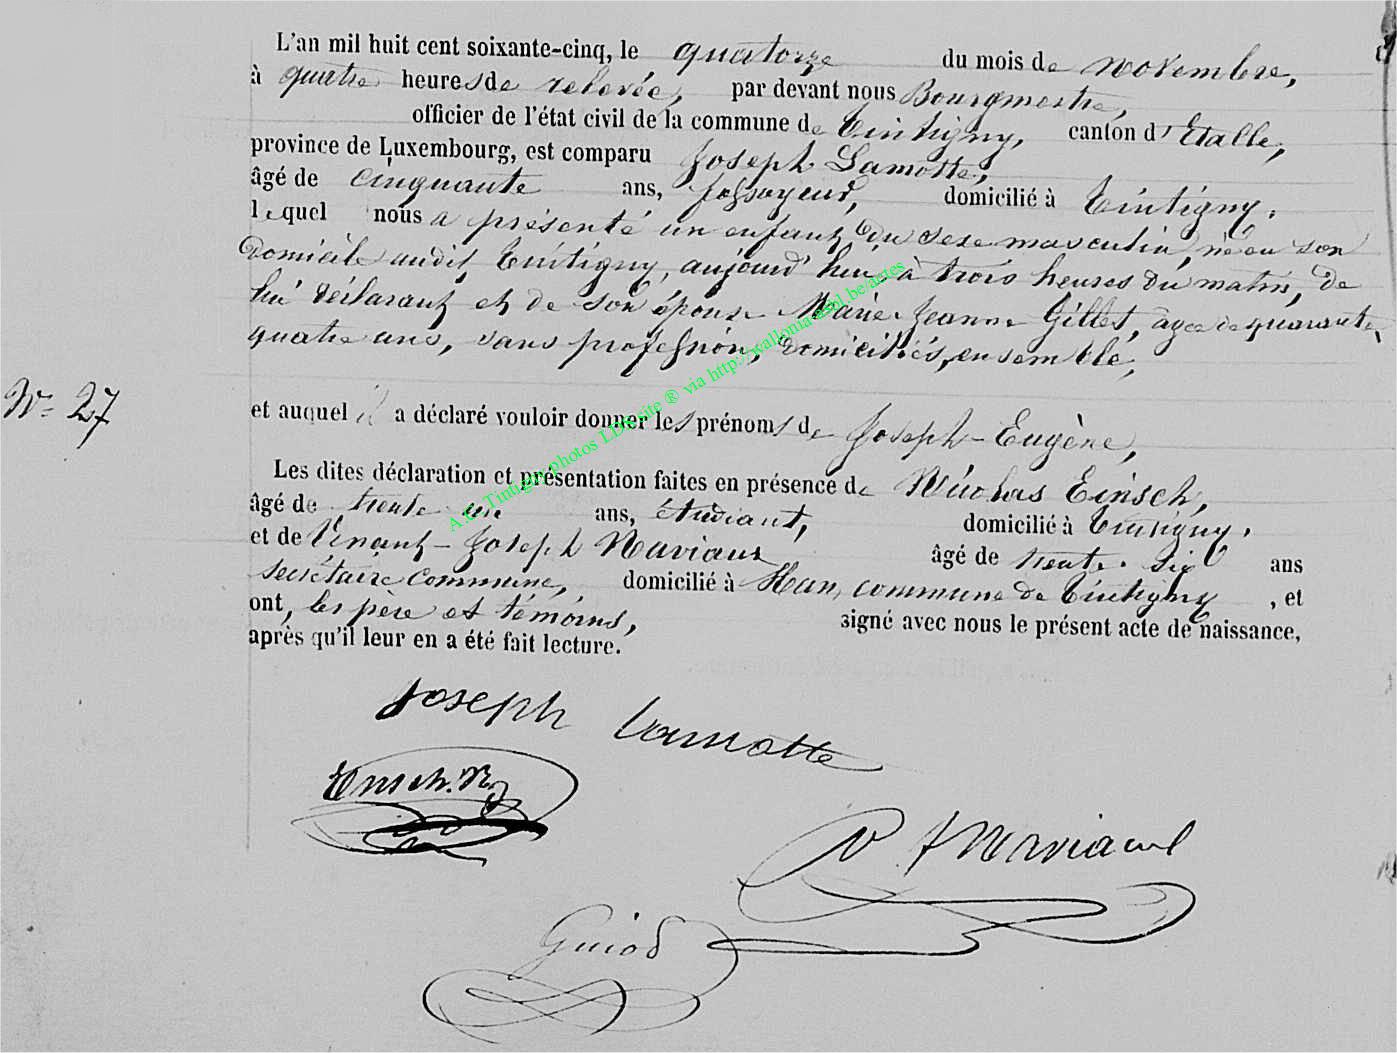 L'an mil huit cent soixante-cinq, le quatorze du mois de novembre,
à quatre heures de relevée, par devant nous Bourgmestre,
officier de l'état civil de la commune de Tintigny, canton d'Etalle,
province de Luxembourg, est comparu Joseph Lamotte,
âgé de cinquante ans, fossoyeur, domicilié à Tintigny,
lequel nous a présenté un enfant du sexe masculin, né en son
domicile audit Tintigny, aujourd'hui à trois heures du matin, de
lui déclarant et de son épouse Marie Jeanne Gillet, âgée de quarante
quatre ans, sans profession, domiciliés, ensemble,
N° 27
et auquel il a déclaré vouloir donner les prénoms de Joseph-Eugène,
Les dites déclaration et présentation faites en présence de Nicolas Einsch,
âgé de trente un ans, étudiant, domicilié à Tintigny,
et de Vinant-Joseph Naviaux âgé de trente-six ans
secrétaire communal, domicilié à Han, commune de Tintigny, et
ont, les père et témoins, signé avec nous le présent acte de naissance,
après qu'il leur en a été fait lecture.
Joseph Lamotte
Einsch. N
V J Naviaux
Guiod
A.C. Tintigny photos LDS site ® via http://wallonia-asbl.be/actes